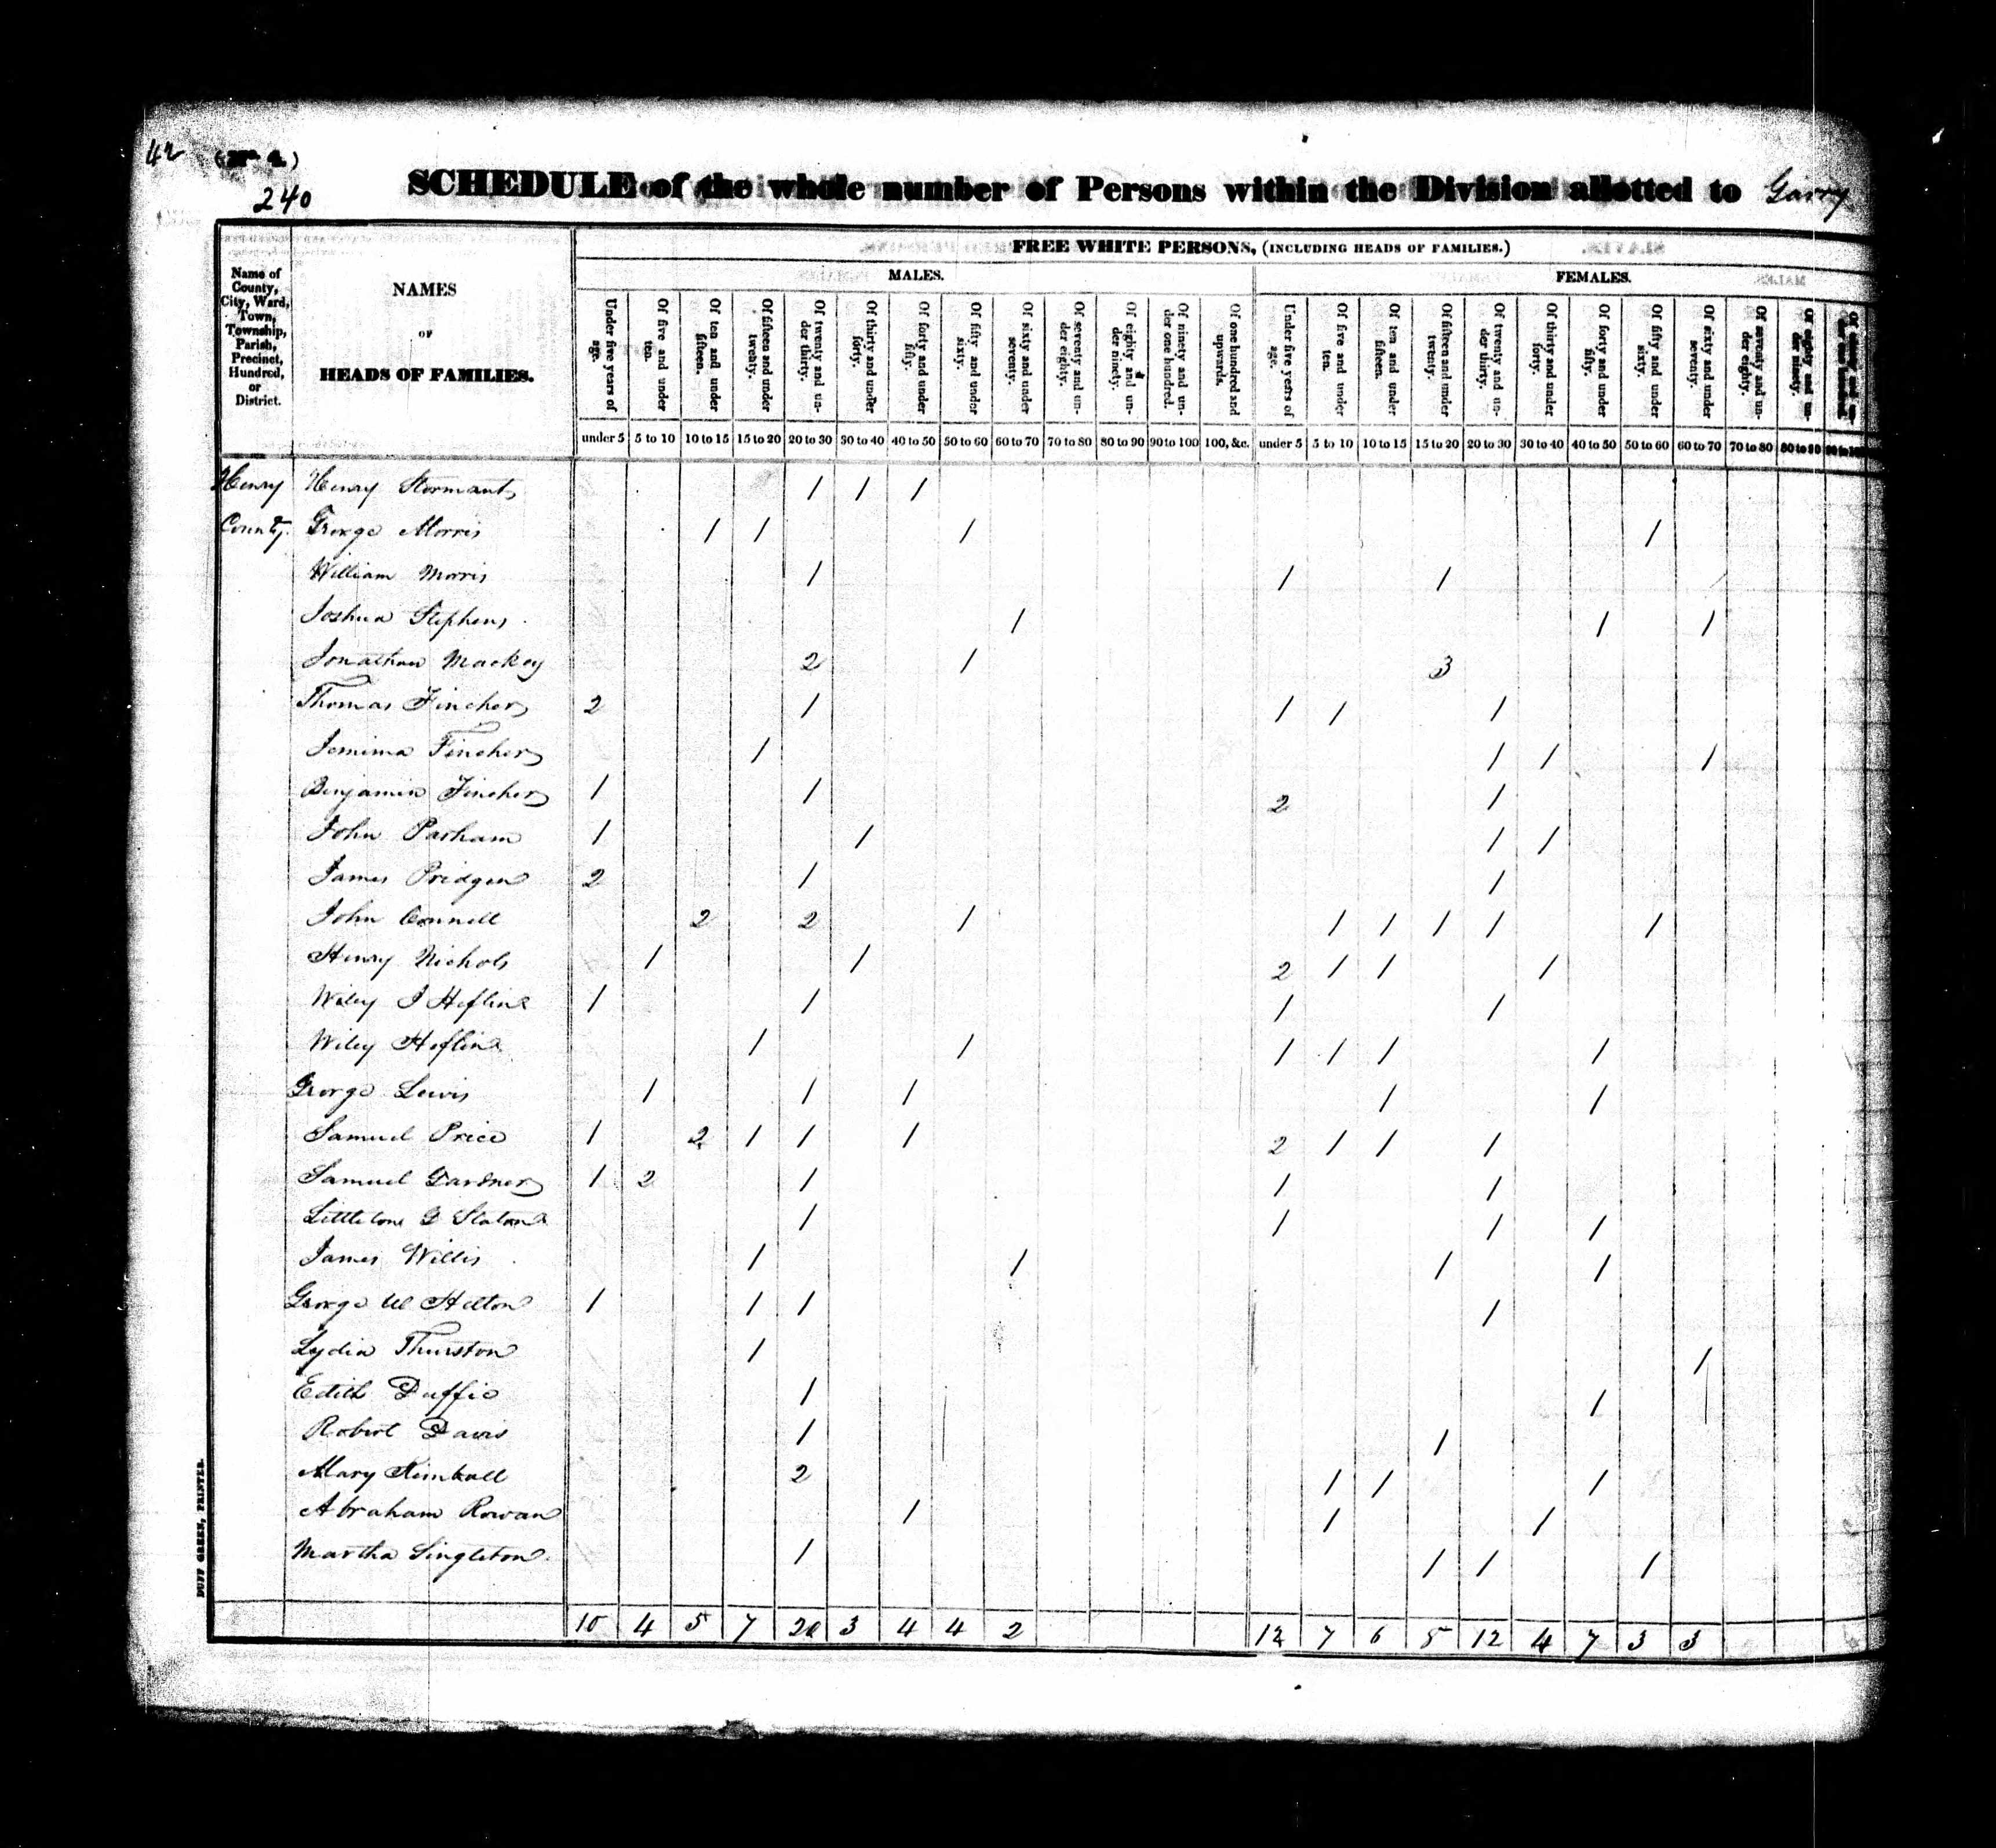 42 (No. 4.)
240
SCHEDULE of the whole number of Persons within the Division allotted to Garry
FREE WHITE PERSONS, (INCLUDING HEADS OF FAMILIES.)
MALES. FEMALES.
Name of County, City, Ward, Town, Township, Parish, Precinct, Hundred, or District.
NAMES
OF
HEADS OF FAMILIES.
Under five years of age.
Of five and under ten.
Of ten and under fifteen.
Of fifteen and under twenty.
Of twenty and under thirty.
Of thirty and under forty.
Of forty and under fifty.
Of fifty and under sixty.
Of sixty and under seventy.
Of seventy and under eighty.
Of eighty and under ninety.
Of ninety and under one hundred.
Of one hundred and upwards.
Under five years of age.
Of five and under ten.
Of ten and under fifteen.
Of fifteen and under twenty.
Of twenty and under thirty.
Of thirty and under forty.
Of forty and under fifty.
Of fifty and under sixty.
Of sixty and under seventy.
Of seventy and under eighty.
Of eighty and under ninety.
under 5 5 to 10 10 to 15 15 to 20 20 to 30 30 to 40 40 to 50 50 to 60 60 to 70 70 to 80 80 to 90 90 to 100 100, &c. under 5 5 to 10 10 to 15 15 to 20 20 to 30 30 to 40 40 to 50 50 to 60 60 to 70 70 to 80 80 to 90
Henry Henry Stormant 1 1 1
County George Morris 1 1 1 1
William Morris 1 1 1
Joshua Stephens 1 1 1
Jonathan Mackey 2 1 3
Thomas Fincher 2 1 1 1 1
Jemima Fincher 1 1 1 1
Benjamin Fincher 1 1 2 1
John Parham 1 1 1 1
James Pridgen 2 1 1
John Connell 2 2 1 1 1 1 1 1
Henry Nichols 1 1 2 1 1 1
Wiley J Heflin 1 1 1 1
Wiley Heflin 1 1 1 1 1 1
George Lewis 1 1 1 1 1
Samuel Price 1 2 1 1 1 2 1 1 1
Samuel Gardner 1 2 1 1 1
Littleton Slaton 1 1 1 1
James Willis 1 1 1 1
George W Hilton 1 1 1 1
Lydia Thurston 1 1
Edith Duffie 1 1
Robert Davis 1 1
Mary Kimball 2 1 1 1
Abraham Rowan 1 1 1
Martha Singleton 1 1 1 1
10 4 5 7 20 3 4 4 2 12 7 6 5 12 4 7 3 3
DUFF GREEN, PRINTER.